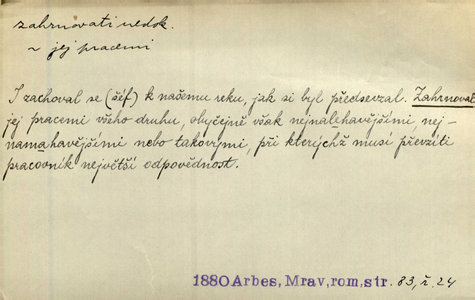 zahrnovati nedok.
~ jej pracemi
I zachoval se (šéf) k našemu reku, jak si byl předsevzal. Zahrnoval
jej pracemi všeho druhu, obyčejně však nejnaléhavějšími, nej-
namahavějšími nebo takovými, při kterýchž musí převzíti
pracovník největší odpovědnost.
1880 Arbes, Mrav, rom, str. 83, ř. 24